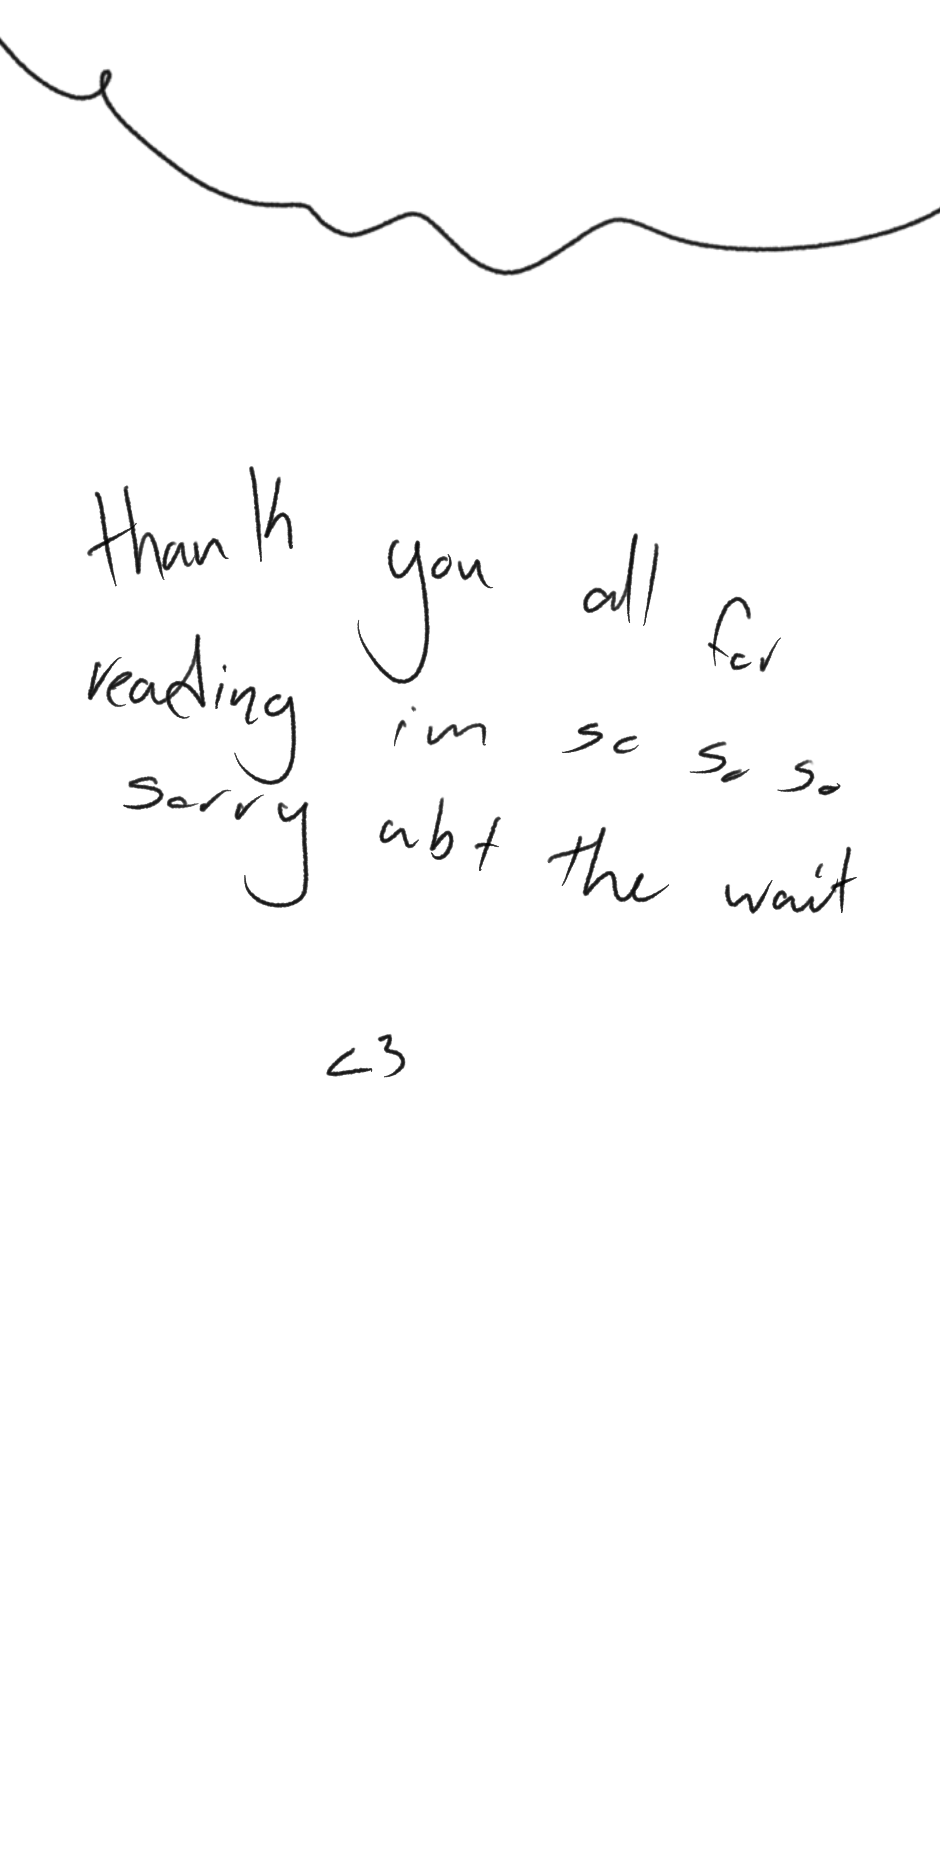 thank you all for
reading im so so so
sorry abt the wait
<3